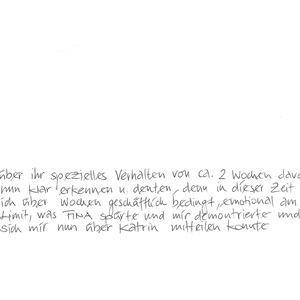 über ihr spezielles Verhalten von ca. 2 Wochen davo
nun klar erkennen u. deuten, denn in dieser Zeit
ich über Wochen geschäftlich bedingt, emotional am
Limit, was FINA spürte und mir demonstrierte und
sich mir nun über Katrin mitteilen konnte